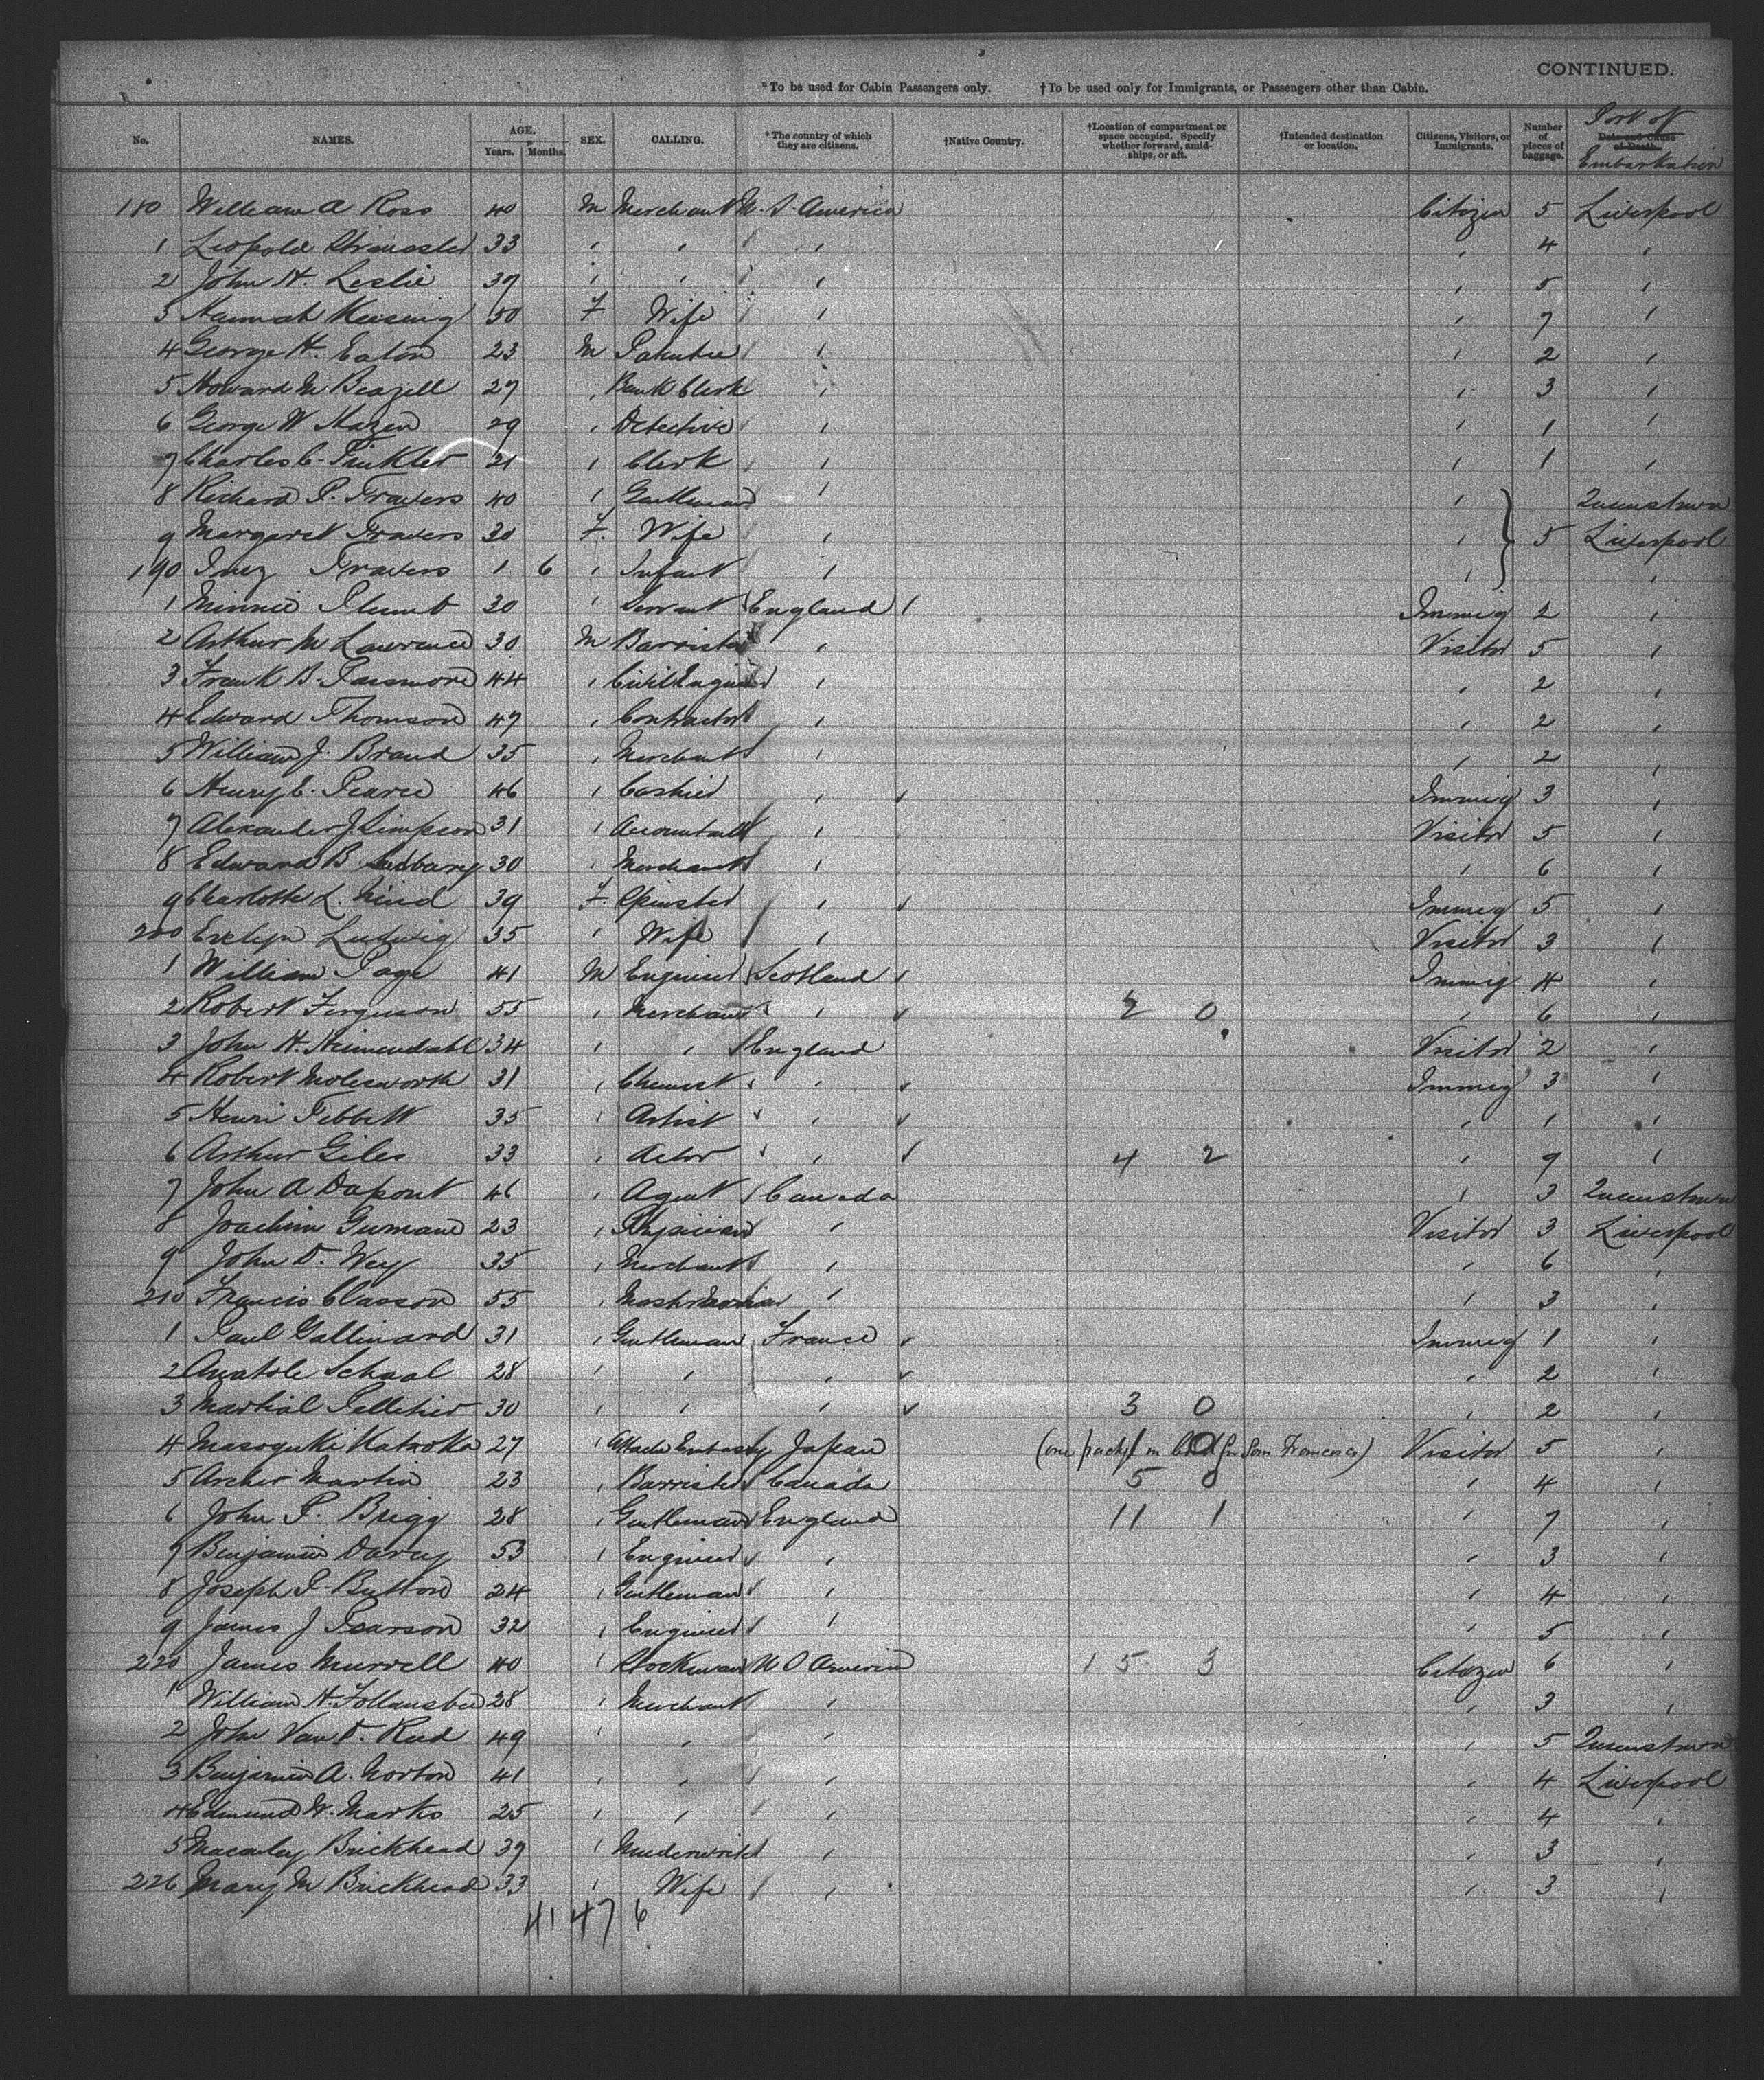 CONTINUED.
*To be used for Cabin Passengers only. †To be used only for Immigrants, or Passengers other than Cabin.
No. NAMES. AGE. Years. Months. SEX. CALLING. *The country of which they are citizens. †Native Country. †Location of compartment or space occupied. Specify whether forward, amidships, or aft. †Intended destination or location. Citizens, Visitors, or Immigrants. Number of pieces of baggage. Date and Cause of Death. Port of Embarkation
180 William A Ross 40 M Merchant U. S. America Citizen 5 Liverpool
1 Leopold 33 , , , , 4 ,
2 John H. Leslie 39 , , , , 5 ,
3 Hannah 50 F Wife , , 7 ,
4 George H. Eaton 23 M , , 2 ,
5 Howard M Beazell 27 , Bank Clerk , , 3 ,
6 George W Hazen 29 , Detective , , 1 ,
7 Charles C. 21 , Clerk , , 1 ,
8 Richard P. Travers 40 , Gentleman , , Queenstown
9 Margaret Travers 30 F. Wife , , 5 Liverpool
190 Inez Travers 1 6 , Infant , , ,
1 Minnie Plumb 30 , Servant England Immig 2 ,
2 Arthur M Lawrence 30 M Barrister , Visitor 5 ,
3 Frank B. Passmore 44 , Civil Engineer , , 2 ,
4 Edward Thomson 47 , Contractor , , 2 ,
5 William J. Brand 35 , Merchant , , 2 ,
6 Henry E. Pearce 46 , Cashier , Immig 3 ,
7 Alexander J. Simpson 31 , Accountant , Visitor 5 ,
8 Edward B. 30 , Merchant , , 6 ,
9 Charlotte L. 39 F. Spinster , Immig 5 ,
200 Evelyn Ludwig 35 , Wife , Visitor 3 ,
1 William Page 41 M Engineer Scotland Immig 4 ,
2 Robert Ferguson 55 , Merchant , 2 0 , 6 ,
3 John H. Heimendahl 34 , , England Visitor 2 ,
4 Robert Molesworth 31 , Chemist , Immig 3 ,
5 Henri Tebbett 35 , Artist , , 1 ,
6 Arthur Giles 33 , Actor , 4 2 , 9 ,
7 John A Dupont 46 , Agent Canada , 3 Queenstown
8 Joachim 23 , Physician , Visitor 3 Liverpool
9 John D. Wey 35 , Merchant , , 6 ,
210 Francis Classon 55 , Master , , 3 ,
1 Paul Gallinard 31 , Gentleman France Immig 1 ,
2 Anatole Schaal 28 , , , , 2 ,
3 Martial Pelletier 30 , , , 3 0 , 2 ,
4 Masoyuki Kataoka 27 , Attache Embassy Japan (one pack in bond for San Francisco) Visitor 5 ,
5 Archer Martin 23 , Barrister Canada 5 0 , 4 ,
6 John P. Brigg 28 , Gentleman England 11 1 , 7 ,
7 Benjamin Darcy 53 , Engineer , , 3 ,
8 Joseph P. Button 24 , Gentleman , , 4 ,
9 James J Pearson 32 , Engineer , , 5 ,
220 James Murrell 40 , Stockman U S America 15 3 Citizen 6 ,
1 William H. Follansbee 28 , Merchant , , 3 ,
2 John Van D. Reed 49 , , , , 5 Queenstown
3 Benjamin A. Norton 41 , , , , 4 Liverpool
4 Edmund W. Marks 25 , , , , 4 ,
5 Macauley Brickhead 39 , Underwriter , , 3 ,
226 Mary M Brickhead 33 , Wife , , 3 ,
41 47 6